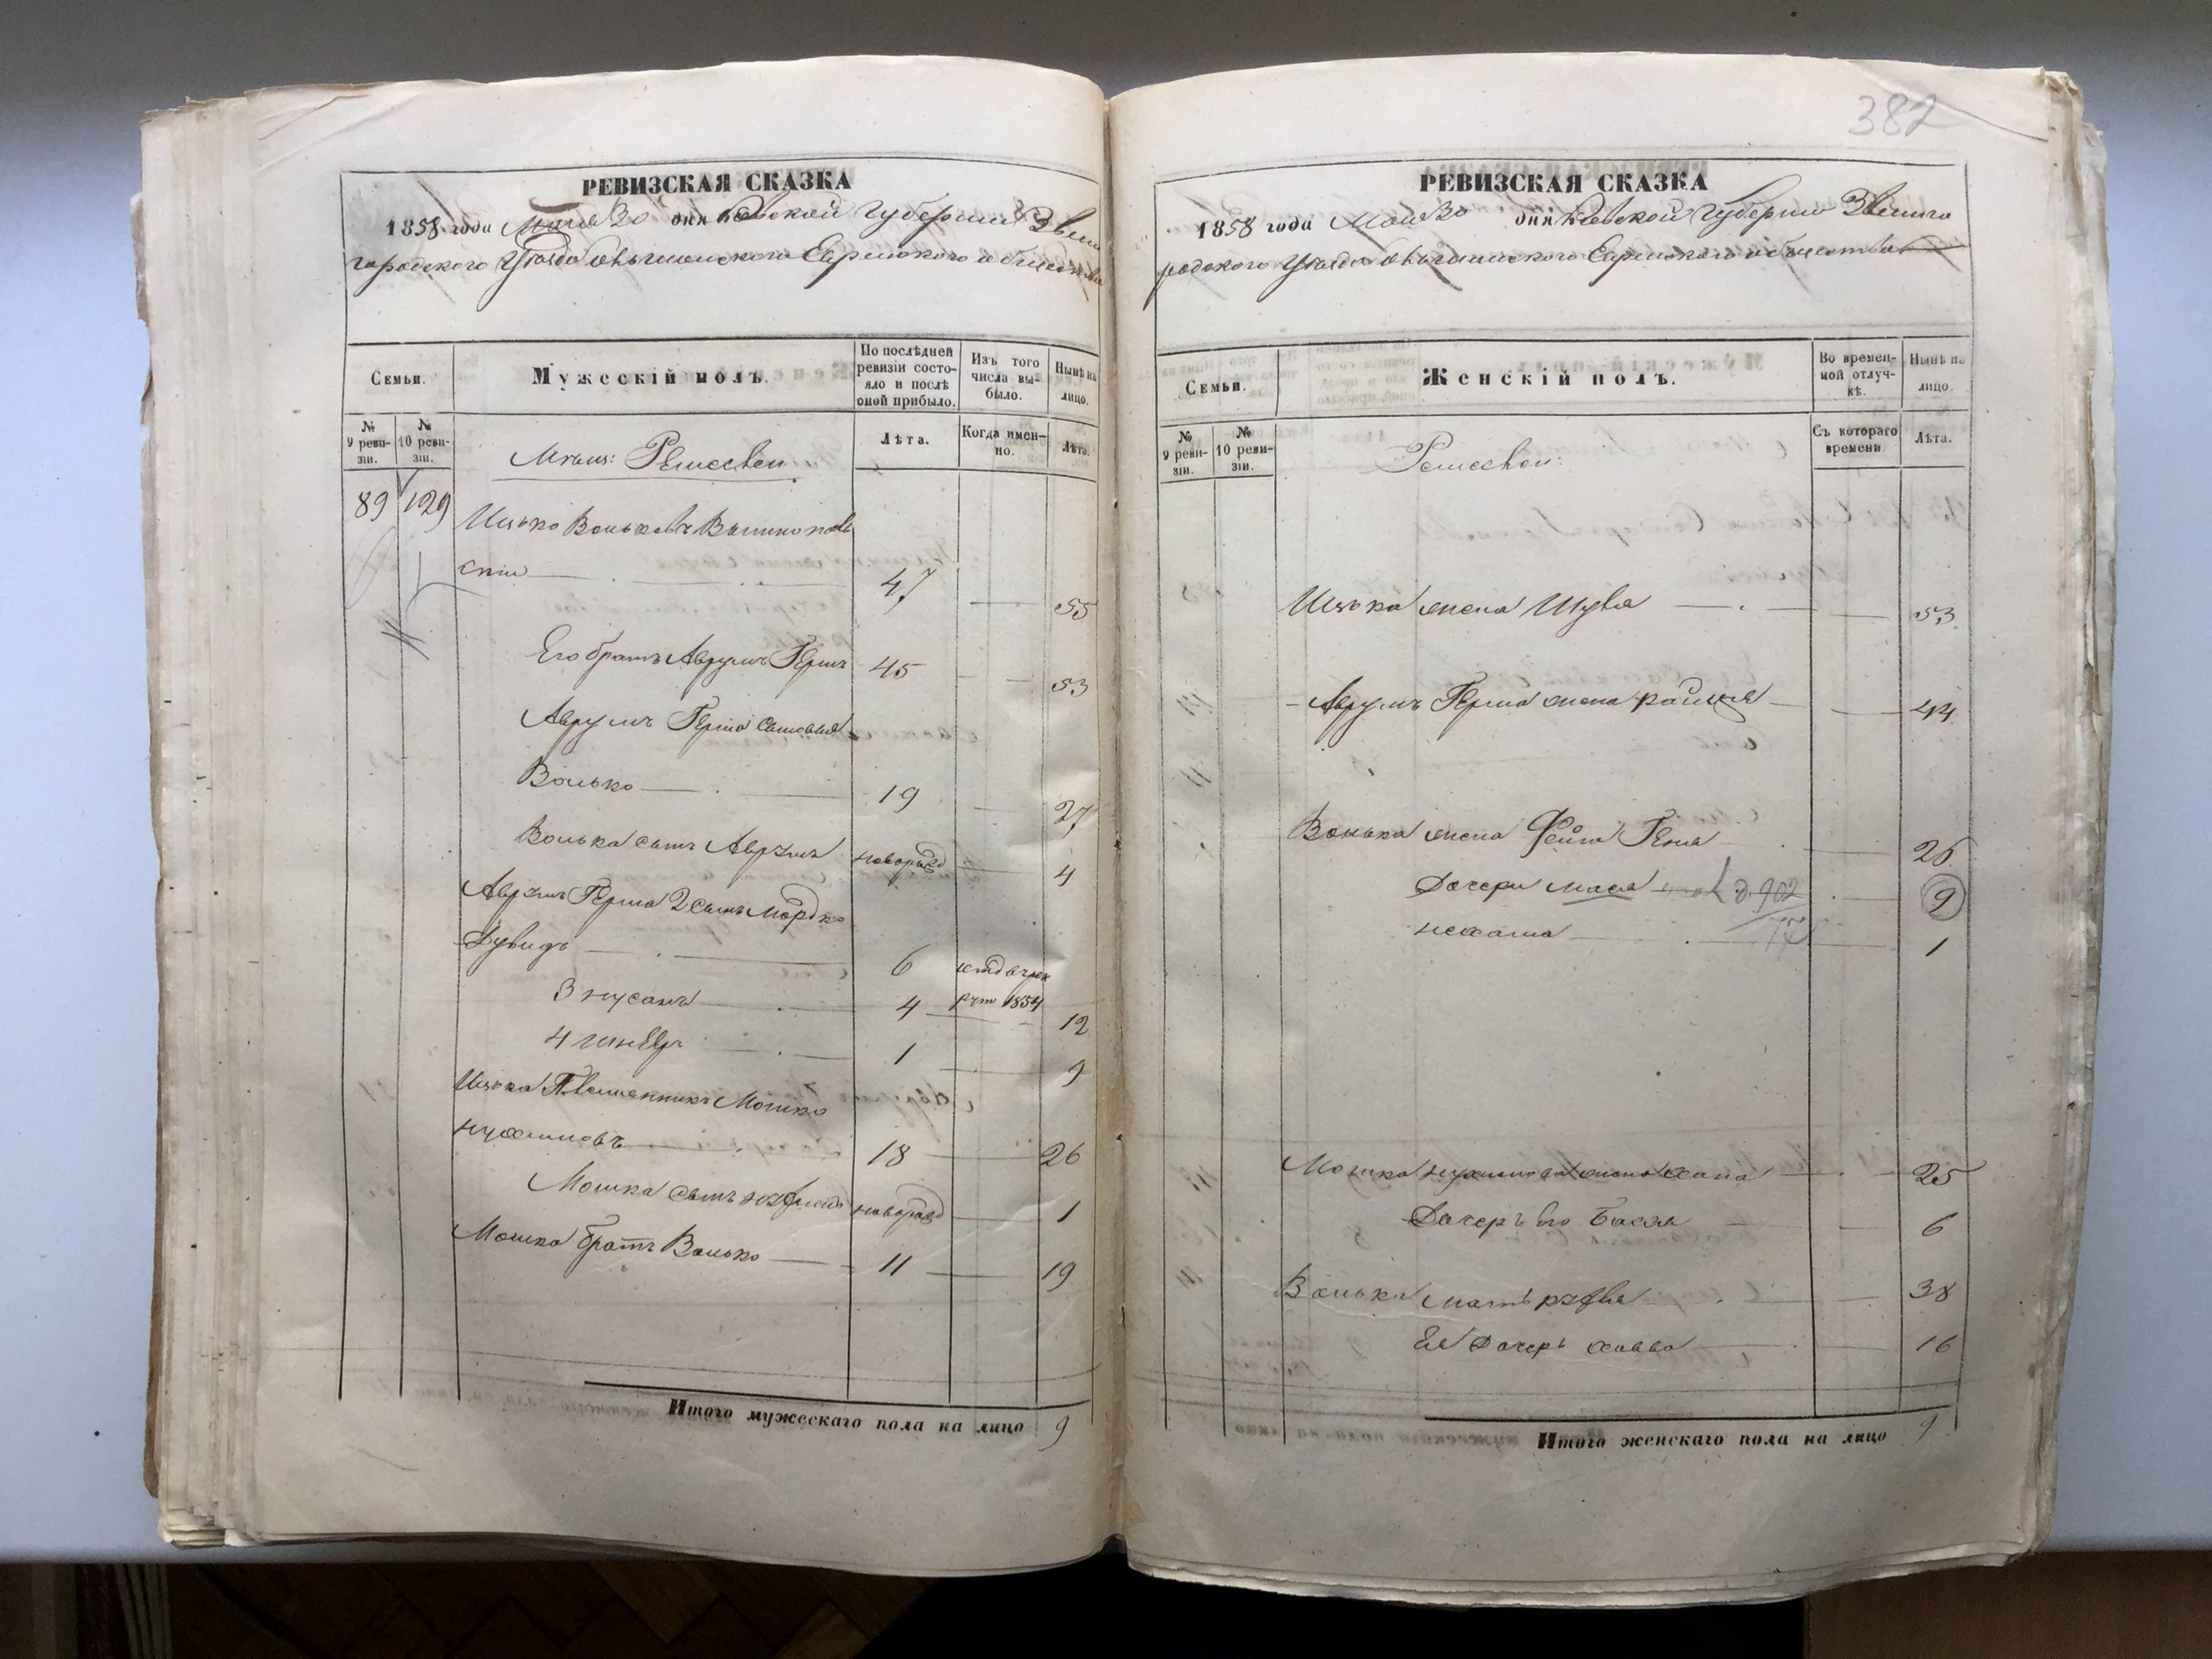 РЕВИЗСКАЯ СКАЗКА
1858 года Мая 30 дня Киевской Губернии Звени
городского Уезда Ольшанского Еврейского общества
Семьи.
Мужескій полъ.
По послѣдней ревизіи состояло и послѣ оной прибыло.
Изъ того числа выбыло.
Нынѣ на лицо.
№ 9 ревизіи.
№ 10 ревизіи.
Лѣта.
Когда именно.
Лѣта.
Мѣщ:
89 129
Ицько Вольковъ
скій 47 55
Его братъ Аврумъ Герш 45 53
Аврумъ Герша сыновья
Волько 19 27
Волька сынъ Аврумъ новорожд 4
Аврумъ Герша 2 сынъ Мордко
Дувидъ 6
3 Нусанъ 4 1854 12
4 1 9
Ицька Племянникъ Мошко
Нухимовъ 18 26
Мошка сынъ новорожд 1
Мошка братъ Волько 11 19
Итого мужескаго пола на лицо 9
382
РЕВИЗСКАЯ СКАЗКА
1858 года Мая 30 дня Киевской Губернии Звениго
родского Уезда Ольшанского Еврейского общества
Семьи.
Женскій полъ.
Во временной отлучкѣ.
Нынѣ на лицо.
№ 9 ревизіи.
№ 10 ревизіи.
Съ котораго времени
Лѣта.
Ицька жена Шува 53
Аврумъ Герша жена 44
Волька жена Фейга Геня 26
Дочери Мася 9
Нехама 1
Мошка Нухимова жена Хана 25
Дочеръ Его Бася 6
Волька мать 38
Ея Дочеръ Хавва 16
Итого женскаго пола на лицо 9